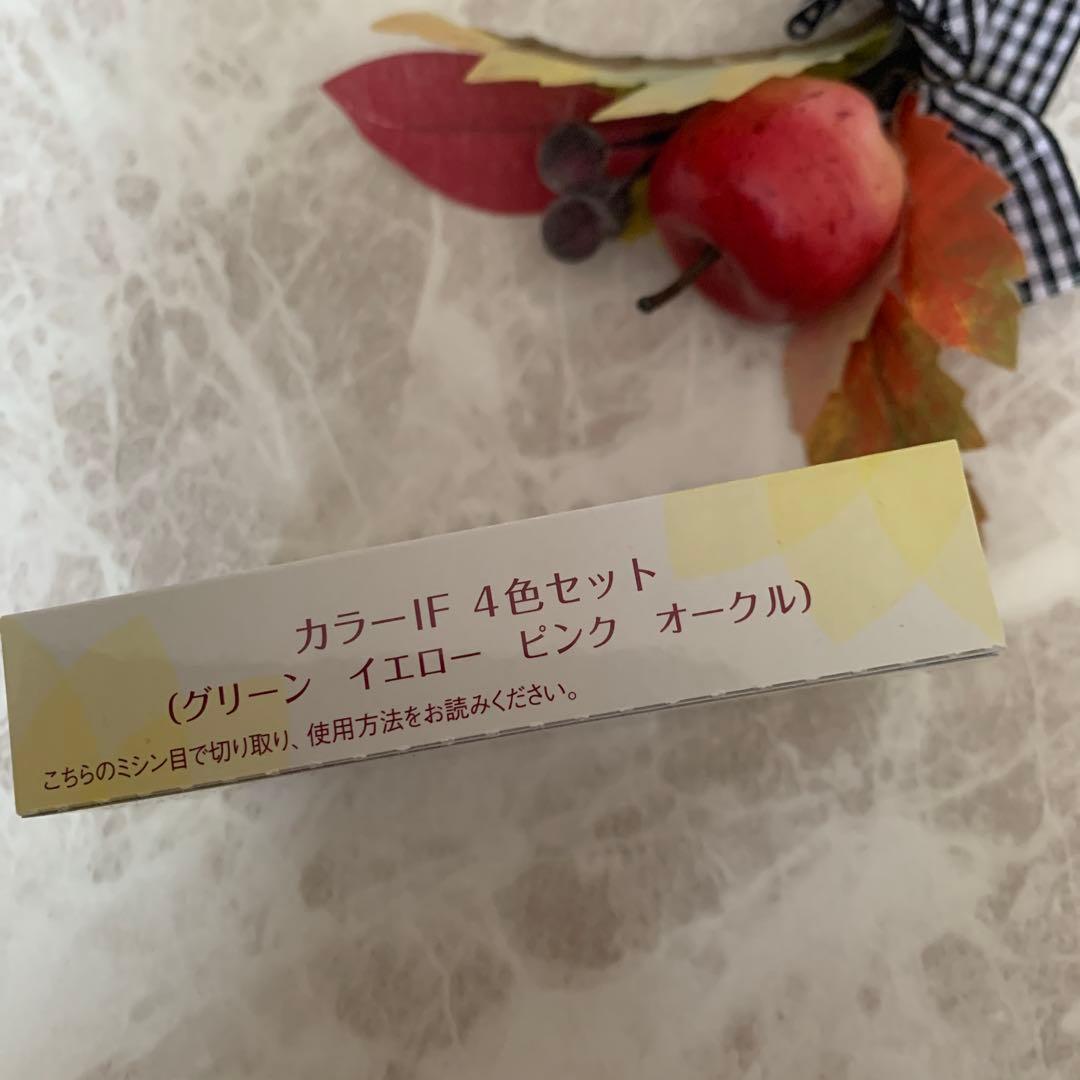 カラーIF 4色セット
(グリーン　イエロー　ピンク　オークル)
こちらのミシン目で切り取り、使用方法をお読みください。